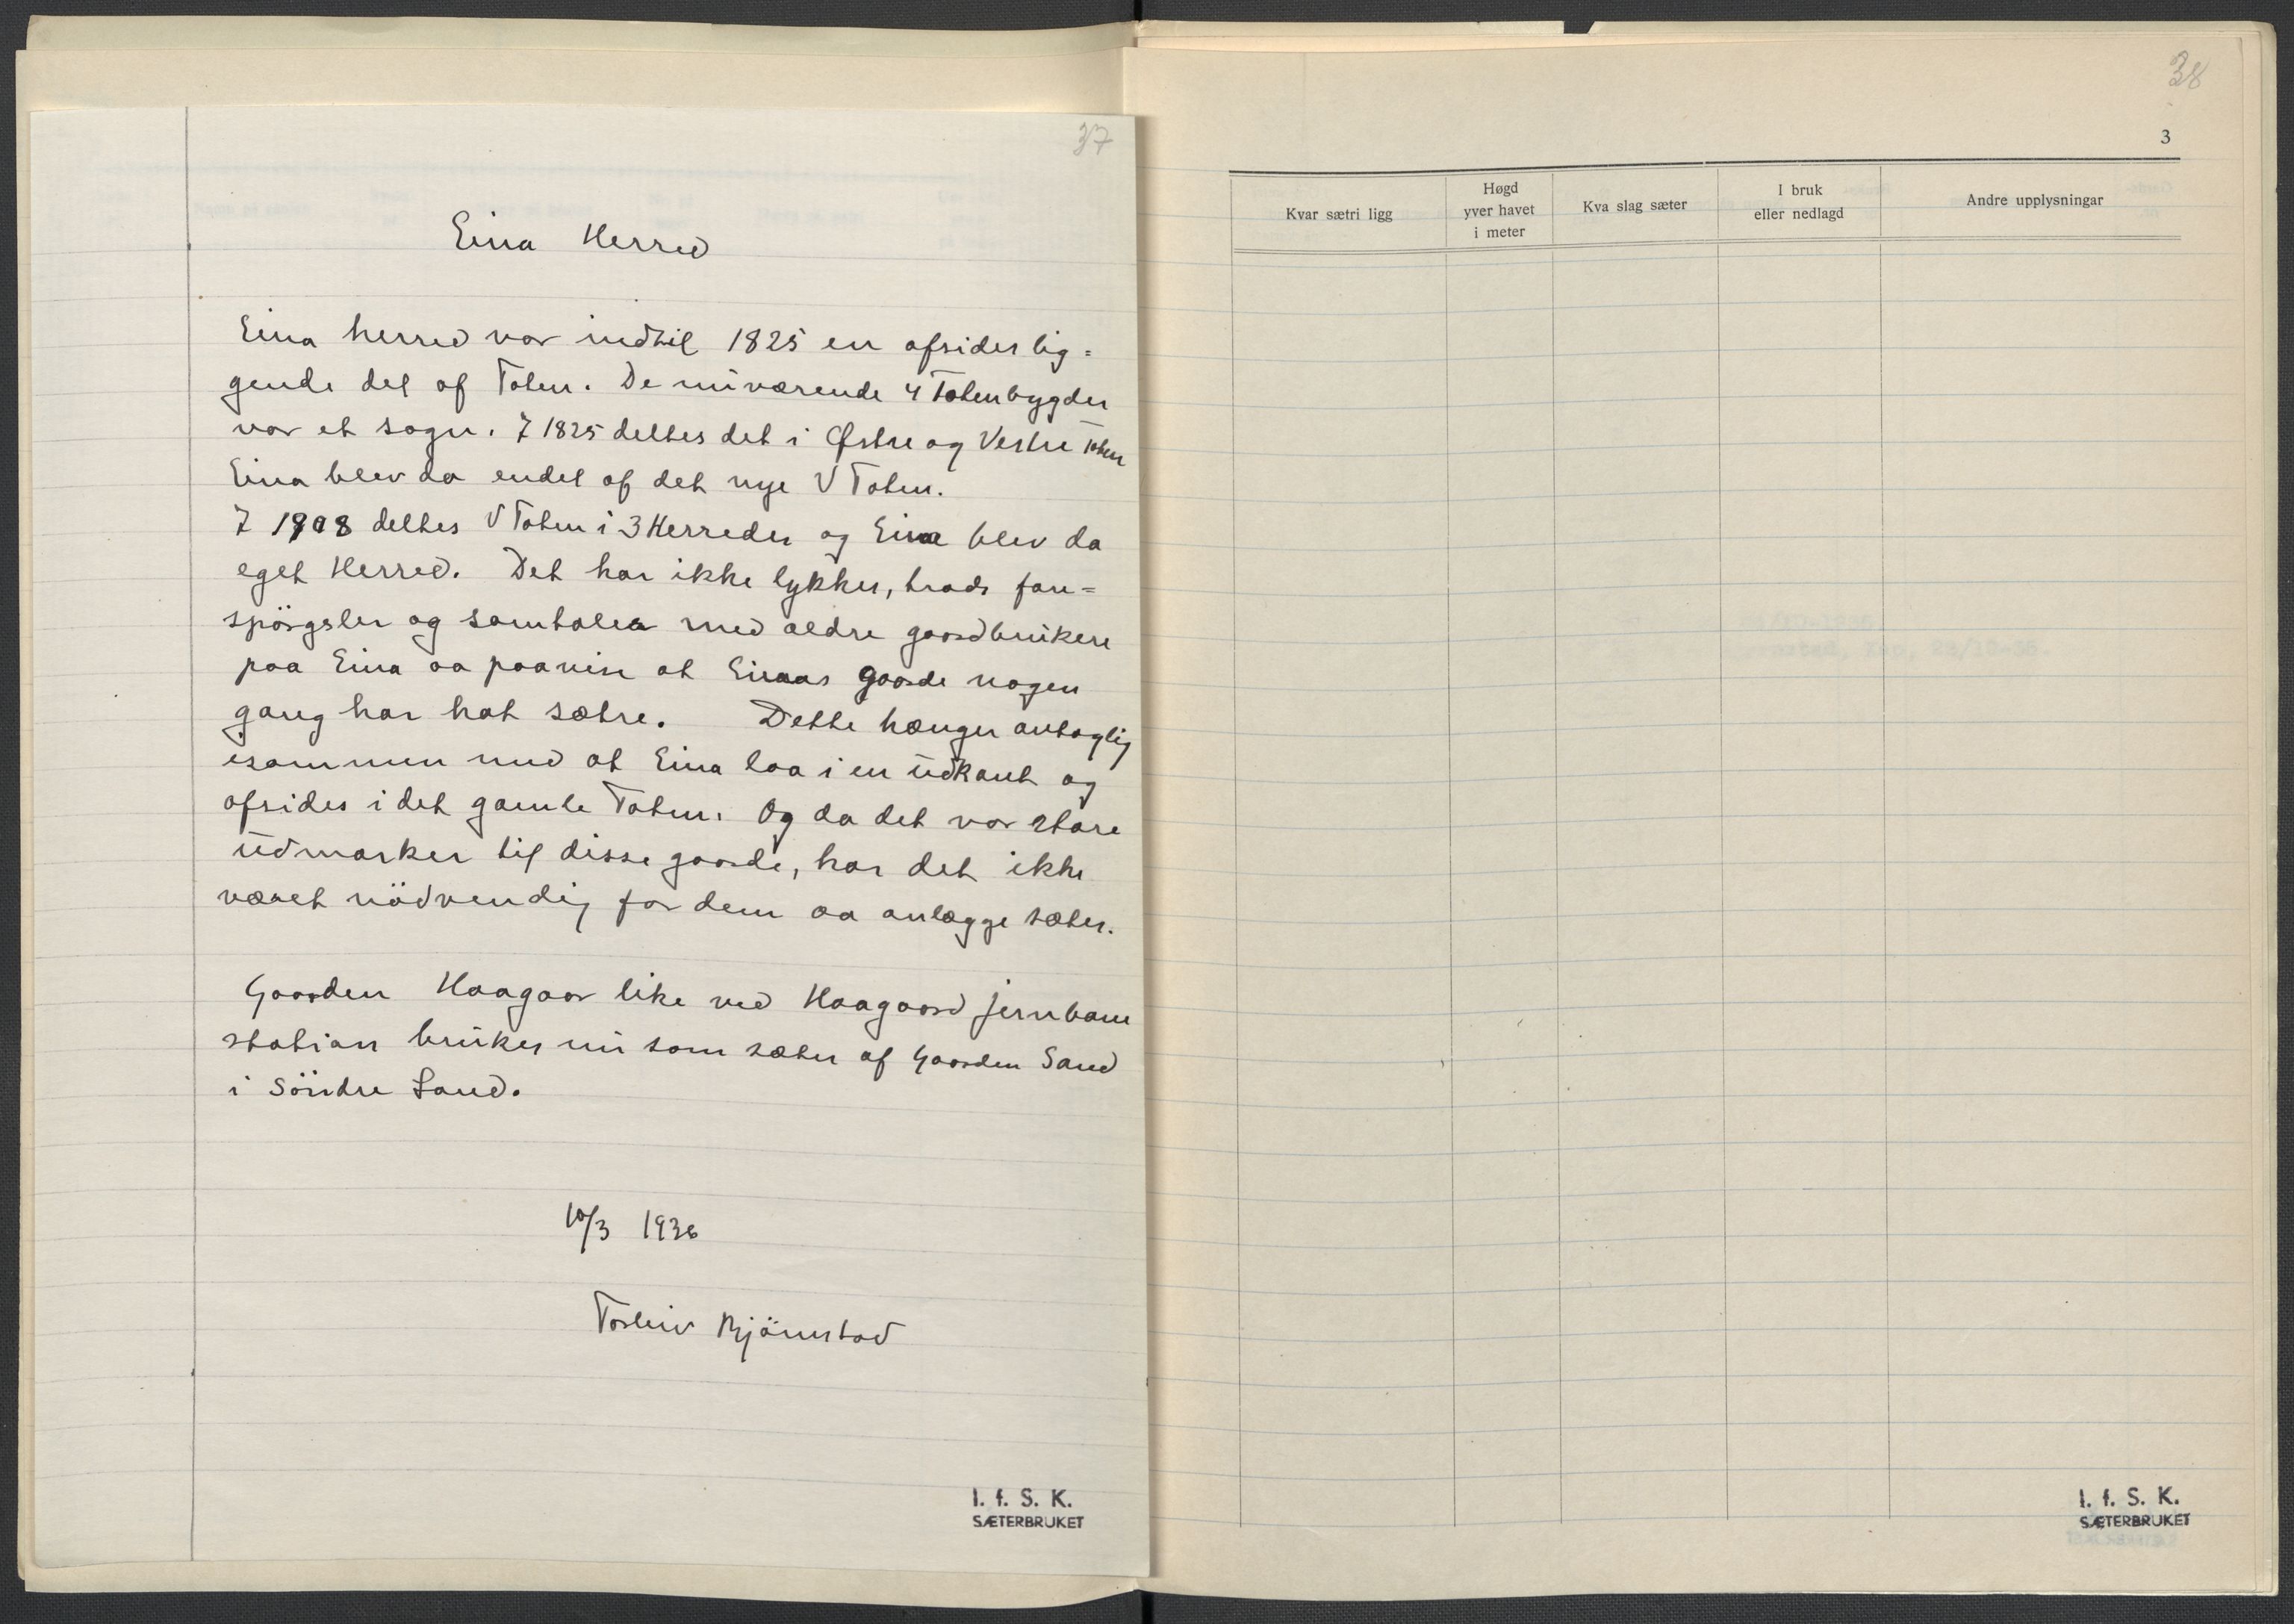 37
Eina Herred
Eina herred var indtil 1825 en afsides lig=
gende del af Toten. De nuværende 4 Totenbygder
var et sogn. I 1825 deltes det i Østre og Vestre Toten
Eina blev da endel af det nye V Toten.
I 1908 deltes V Toten i 3 Herreder og Eina blev da
eget Herred. Det har ikke lykkes, trods fore=
spörgsler og samtaler med ældre gaardbrukere
paa Eina aa paavise at Einas gaarde nogen
gang har hat sætre. Dette hænger antaglig
isammen med at Eina laa i en udkant og
afsides i det gamle Toten. Og da det var store
udmarker til disse gaarde, har det ikke
været nödvendig for dem aa anlægge sæter.
Gaarden Haagaar like ved Haagaard jernbane
station brukes nu som sæter af Gaarden Sand
i Söndre Land.
10/3 1936
Torleiv Björnstad
I. f. S. K.
SÆTERBRUKET
38
3
Kvar sætri ligg
Høgd
yver havet
i meter
Kva slag sæter
I bruk
eller nedlagd
Andre upplysningar
I. f. S. K.
SÆTERBRUKET